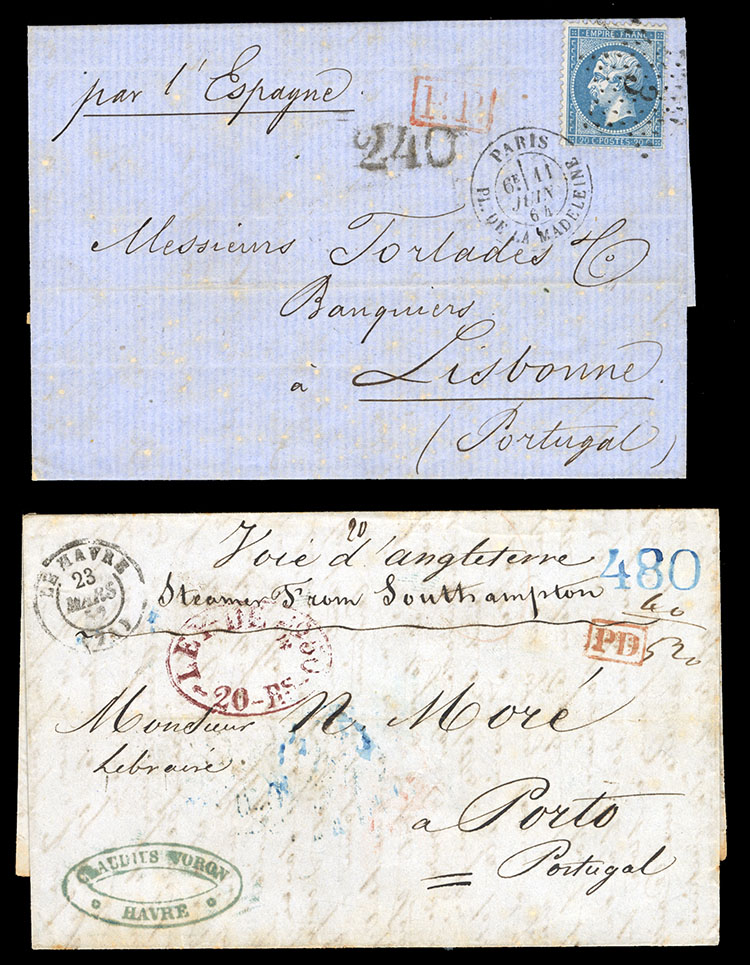 par l'Espagne
P.P.
240
EMPIRE FRANC
20 C. POSTES 20 C.
3
PARIS
6E 11
JUIN
64
PL. DE LA MADELEINE
Messieurs Torlades & Co
Banquiers
à Lisbonne
(Portugal)
LE HAVRE
23
MARS
20
Voie d'angleterre
480
Steamer From Southampton
40
520
PD
LEI DE
20-RS
Monsieur N. Moré
Libraire
a Porto
Portugal
CLAUDIUS VORON
HAVRE